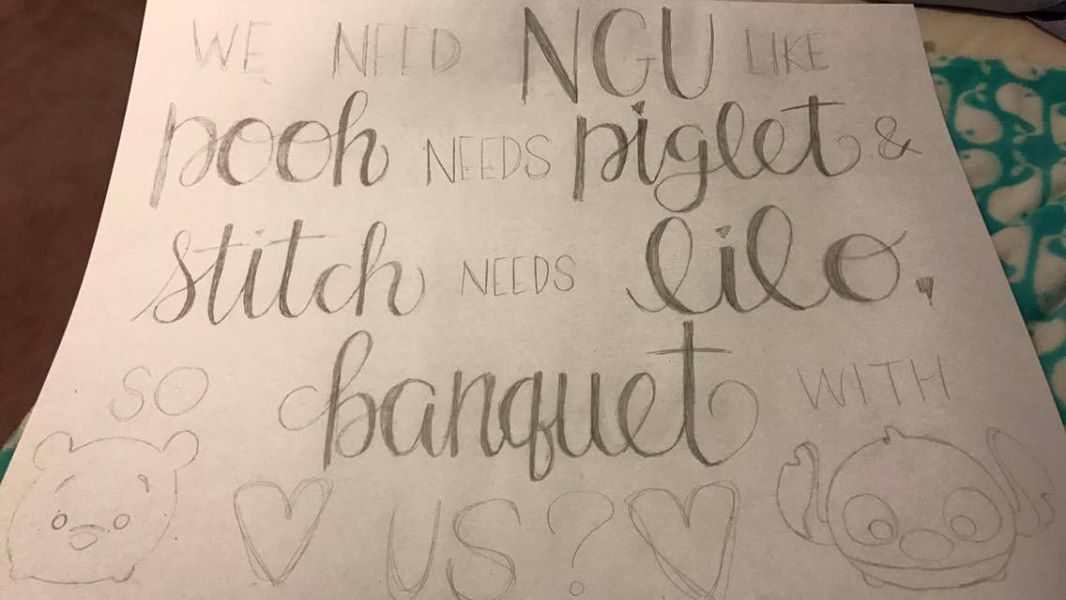 WE NEED NGU LIKE
pooh NEEDS piglet &
stitch NEEDS lilo,
SO banquet WITH
♡ US? ♡